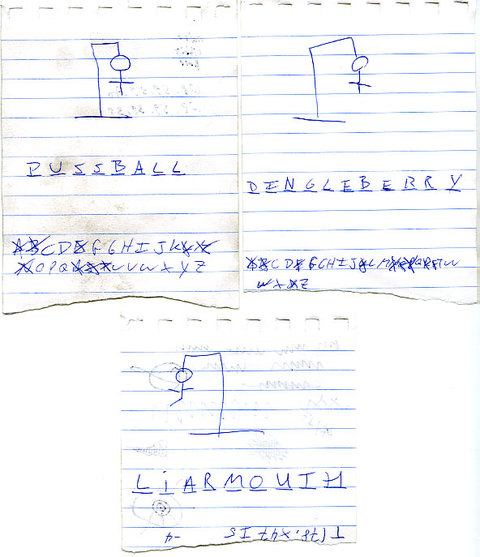 PUSSBALL
ABCDEFGHIJKLM
NOPQRSTUVWXYZ
DINGLEBERRY
ABCDEFGHIJKLMNOPQRSTUV
WXYZ
LiARMOUTH